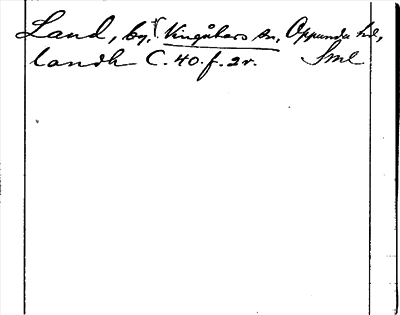 Land, by, Vingåkers sn, Oppunda hd,
landh C. 40. f. 2v. Sml